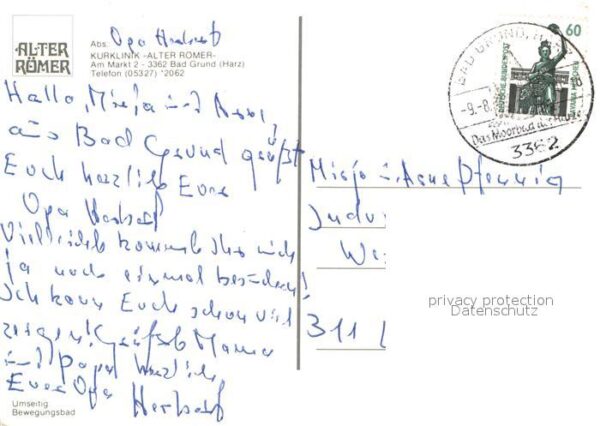 ALTER
RÖMER
Abs. Opa Herbert
KURKLINIK -ALTER RÖMER-
Am Markt 2 - 3362 Bad Grund (Harz)
Telefon (05327) *2062
Hallo, Misja und
aus Bad Grund grüßt
Euch herzlich Euer
Opa Herbert
Vielleicht kommt Ihr mich
ja noch einmal besuchen!
Ich kann Euch schon viel
zeigen! Grüßt Mama
und Papa herzlich
Euer Opa
Herbert
Umseitig
Bewegungsbad
60
DEUTSCHE BUNDESPOST
BAD GRUND, HARZ
-9.-8.
Das Moorbad
3362
Misja u. Arne Pfennig
311
privacy protection
Datenschutz